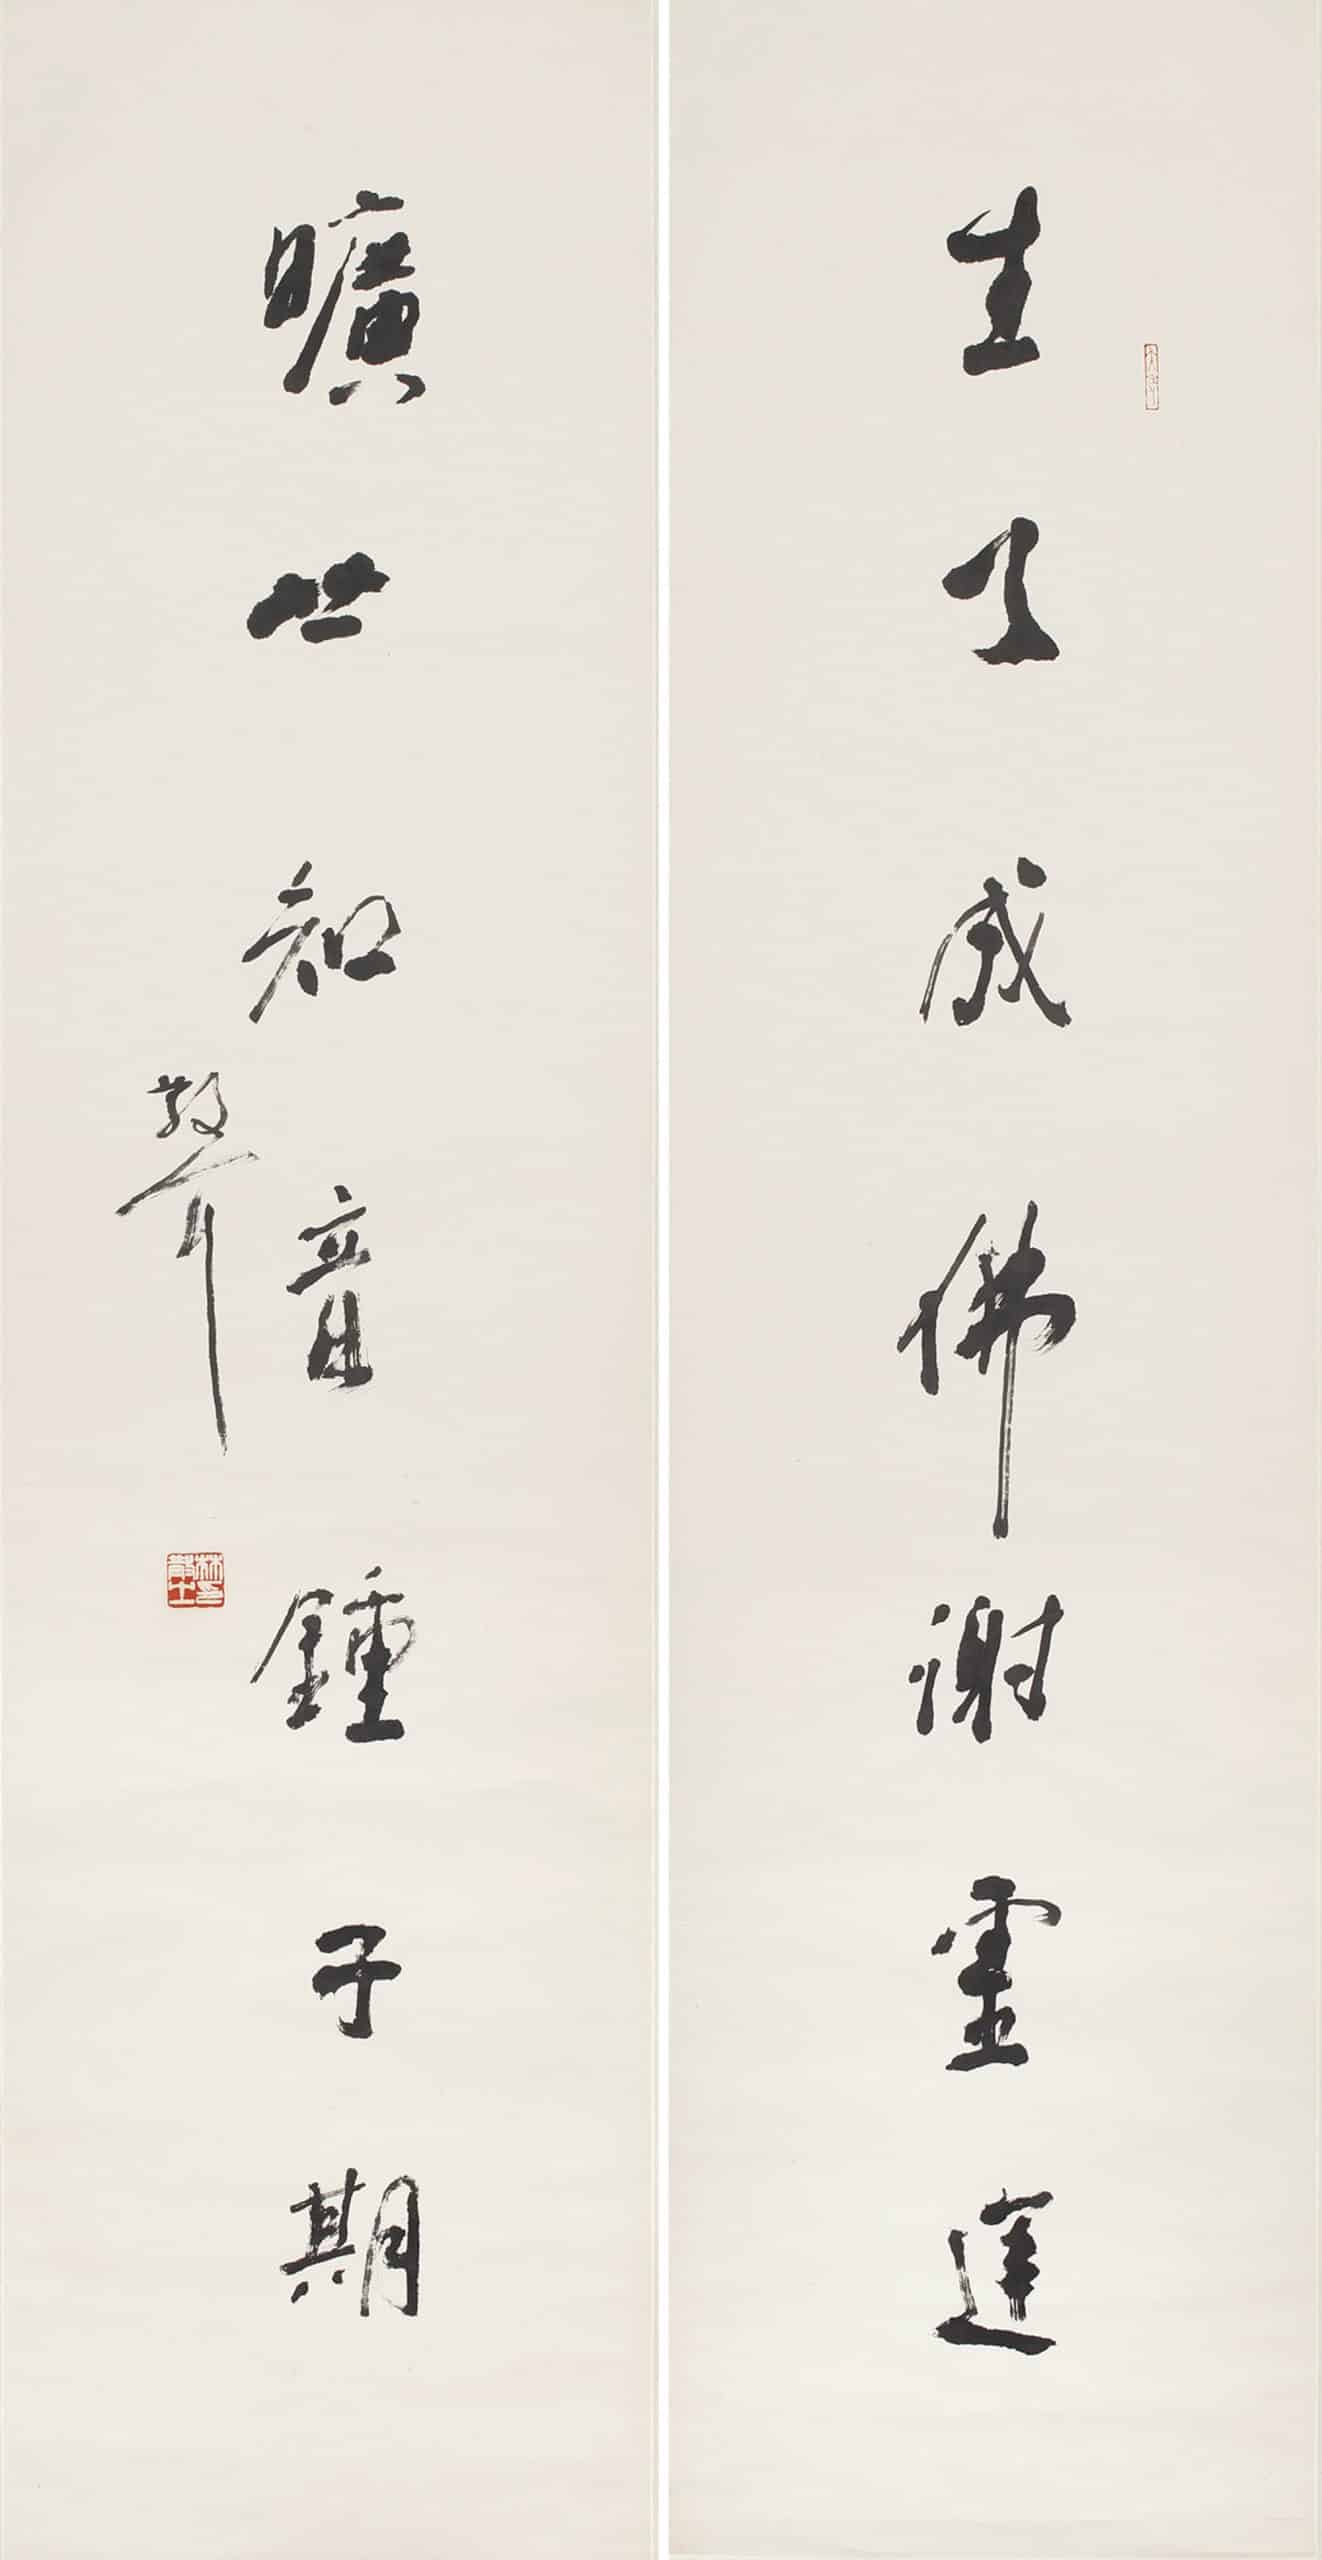 生天成佛謝靈運
曠世知音鍾子期
散耳
林散之印